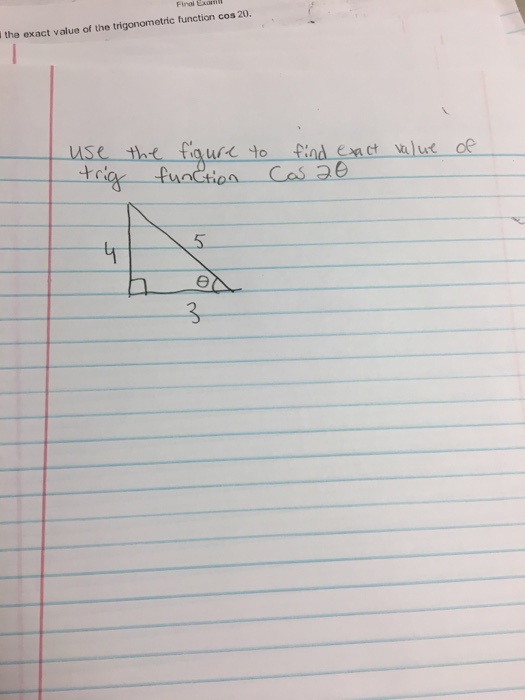 Final Exam
the exact value of the trigonometric function cos 2θ.
use the figure to find exact value of
trig function Cos 2θ
4
5
θ
3